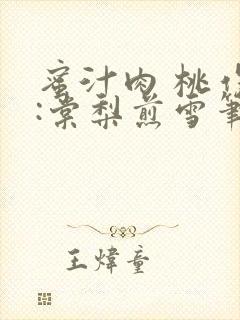 蜜汁肉桃作
:棠梨煎雪筆
王煒童